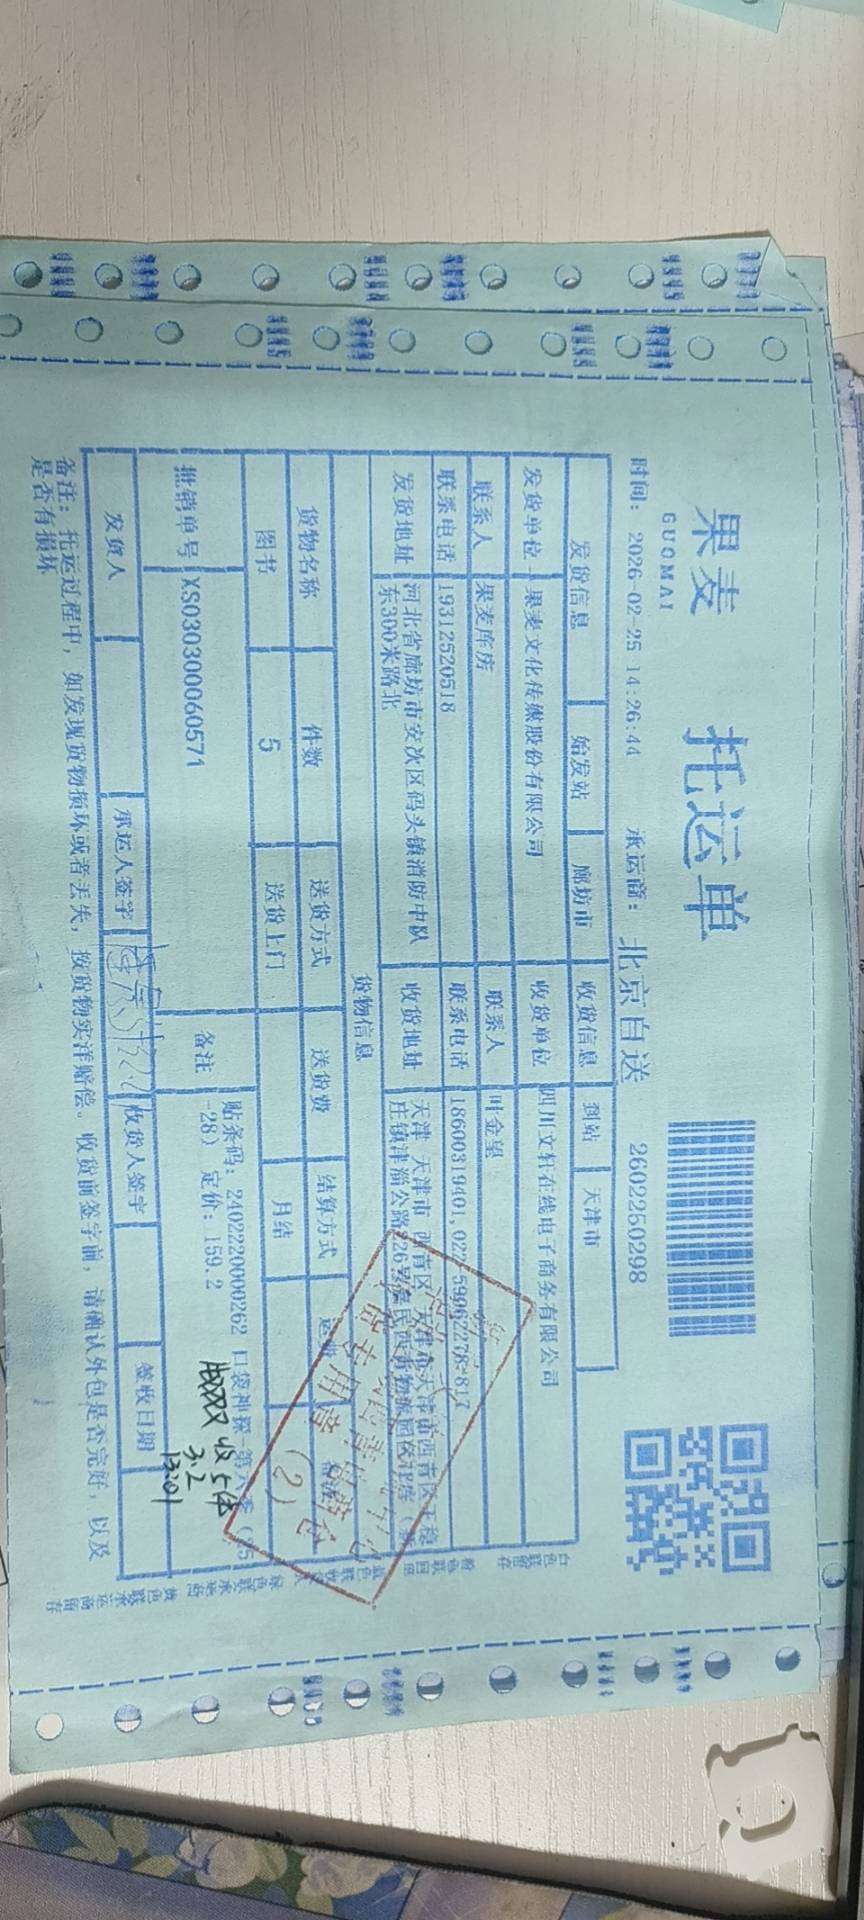 果麦
GUOMAI
托运单
时间：2026-02-25 14:26:44 承运商：北京自送 2602250298
发货信息 始发站 廊坊市 收货信息 到站 天津市
发货单位 果麦文化传媒股份有限公司 收货单位 四川文轩在线电子商务有限公司
联系人 果麦库房 联系人 叶金望
联系电话 19312520518 联系电话 18600319401,022-59062278-817
发货地址 河北省廊坊市安次区码头镇消防中队
东300米路北
收货地址 天津 天津市 西青区 天津市天津市西青区王稳
庄镇津淄公路226号
货物信息
货物名称 件数 送货方式 送货费 结算方式
图书 5 送货上门 月结
批销单号 XS030300060571 备注 贴条码：2402220000262 口袋神探 第六季（25
-28）定价：159.2
收5体
3.2
13:01
专用章
（2）
发货人 承运人签字 收货人签字 签收日期
备注：托运过程中，如发现货物损坏或者丢失，按货物实洋赔偿。收货前签字前，请确认外包是否完好，以及
是否有损坏